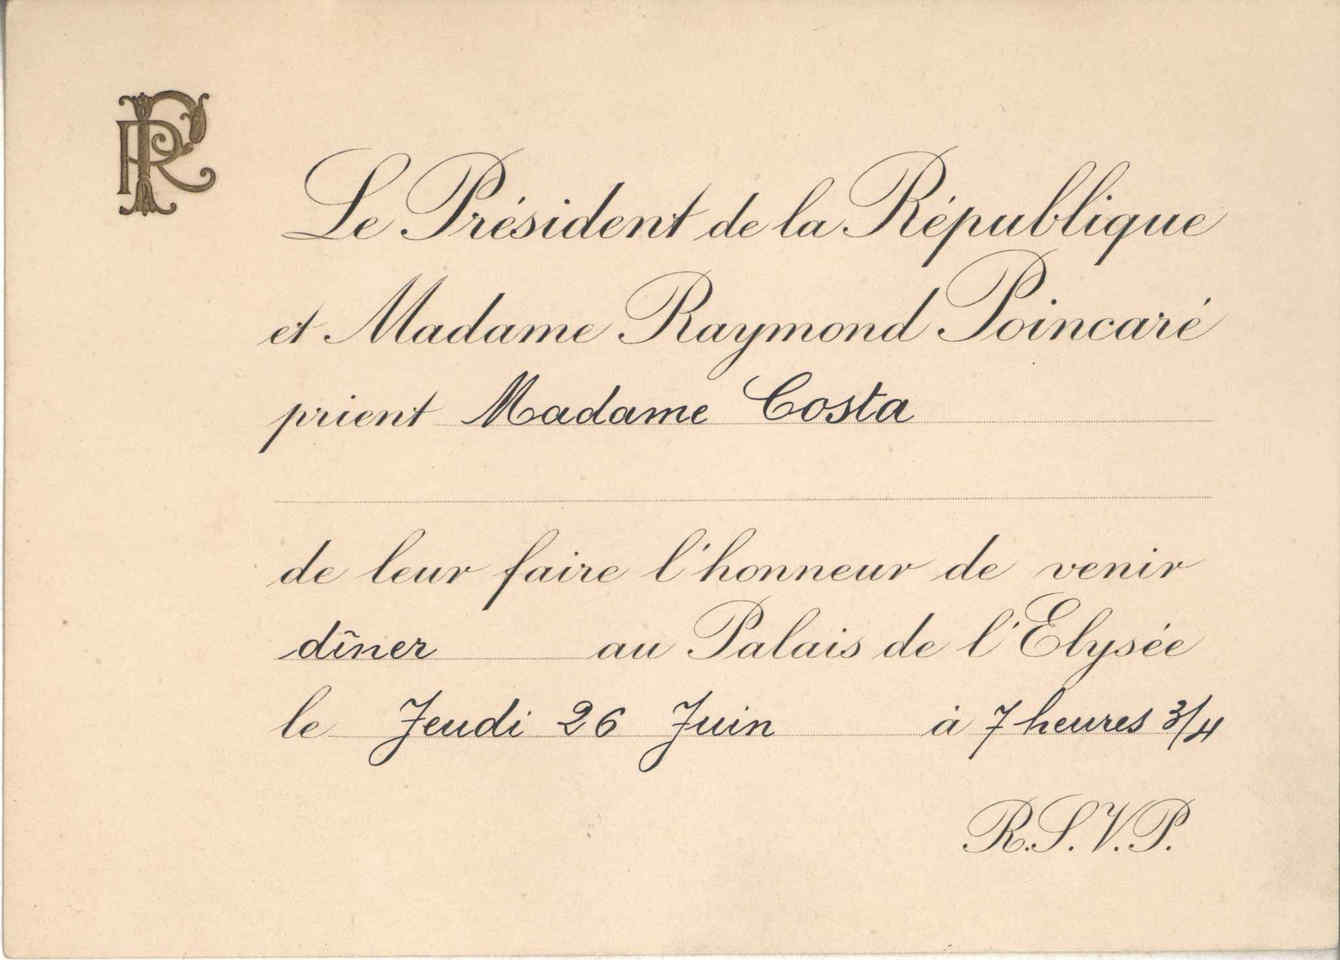 RP
Le Président de la République
et Madame Raymond Poincaré
prient Madame Costa
de leur faire l'honneur de venir
dîner au Palais de l'Elysée
le Jeudi 26 Juin à 7 heures 3/4
R.S.V.P.